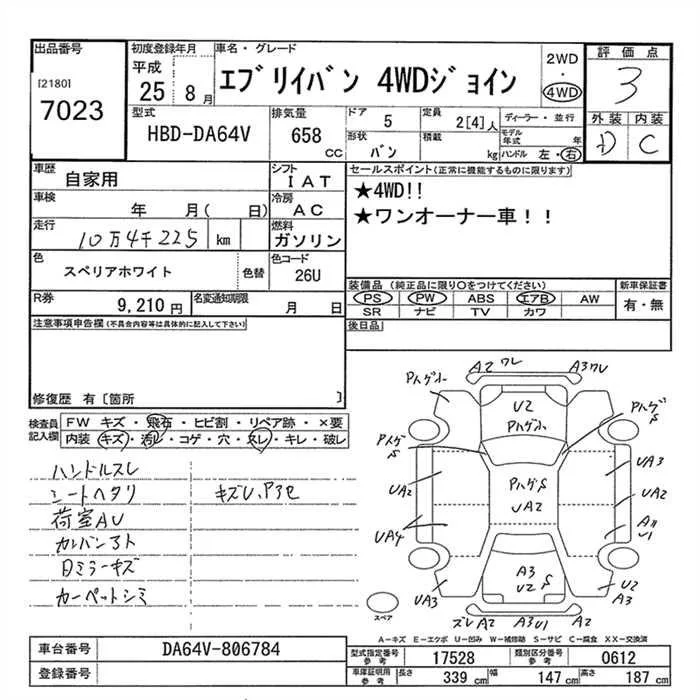 出品番号 [2180] 7023
初度登録年月 平成 25 8 月
車名・グレード エブリイバン 4WDジョイン
2WD ・ 4WD
評価点 3
外装 D 内装 C
型式 HBD-DA64V
排気量 658 CC
ドア 5
形状 バン
定員 2[4]人
積載 kg
ディーラー・並行
モデル年式 年
ハンドル 左・右
車歴 自家用
シフト IAT
車検 年 月( 日)
冷房 AC
走行 10万4千225 km
燃料 ガソリン
色 スペリアホワイト 色替
色コード 26U
R券 9,210 円
名変通知期限 月 日
セールスポイント(正常に機能するものに限ります)
★4WD!!
★ワンオーナー車!!
装備品 (純正品に限り○をつけてください)
PS PW ABS エアB AW
SR ナビ TV カワ
新車保証書 有・無
後日品
注意事項申告欄(不具合内容等は具体的に記入して下さい)
修復歴 有[箇所 ]
検査員記入欄
FW キズ・飛石・ヒビ割・リペア跡・×要
内装 キズ・汚レ・コゲ・穴・スレ・キレ・破レ
ハンドルスレ
シートヘタリ キズU.Pアセ
荷室AU
カバン3ト
Dミラーキズ
カーペットシミ
A2 ワレ A3 ワレ
U2
UA2 UA3
UA2 UA2
UA4
A3
U2 S
UA3 U2
A3
ズレ A2 A3U1 A2
スペア
A-キズ E-エクボ U-凹み W-補修跡 S-サビ C-腐食 XX-交換済
車台番号 DA64V-806784
登録番号
型式指定番号 参考 17528
類別区分番号 参考 0612
車庫証明用 参考 長さ 339 cm 幅 147 cm 高さ 187 cm